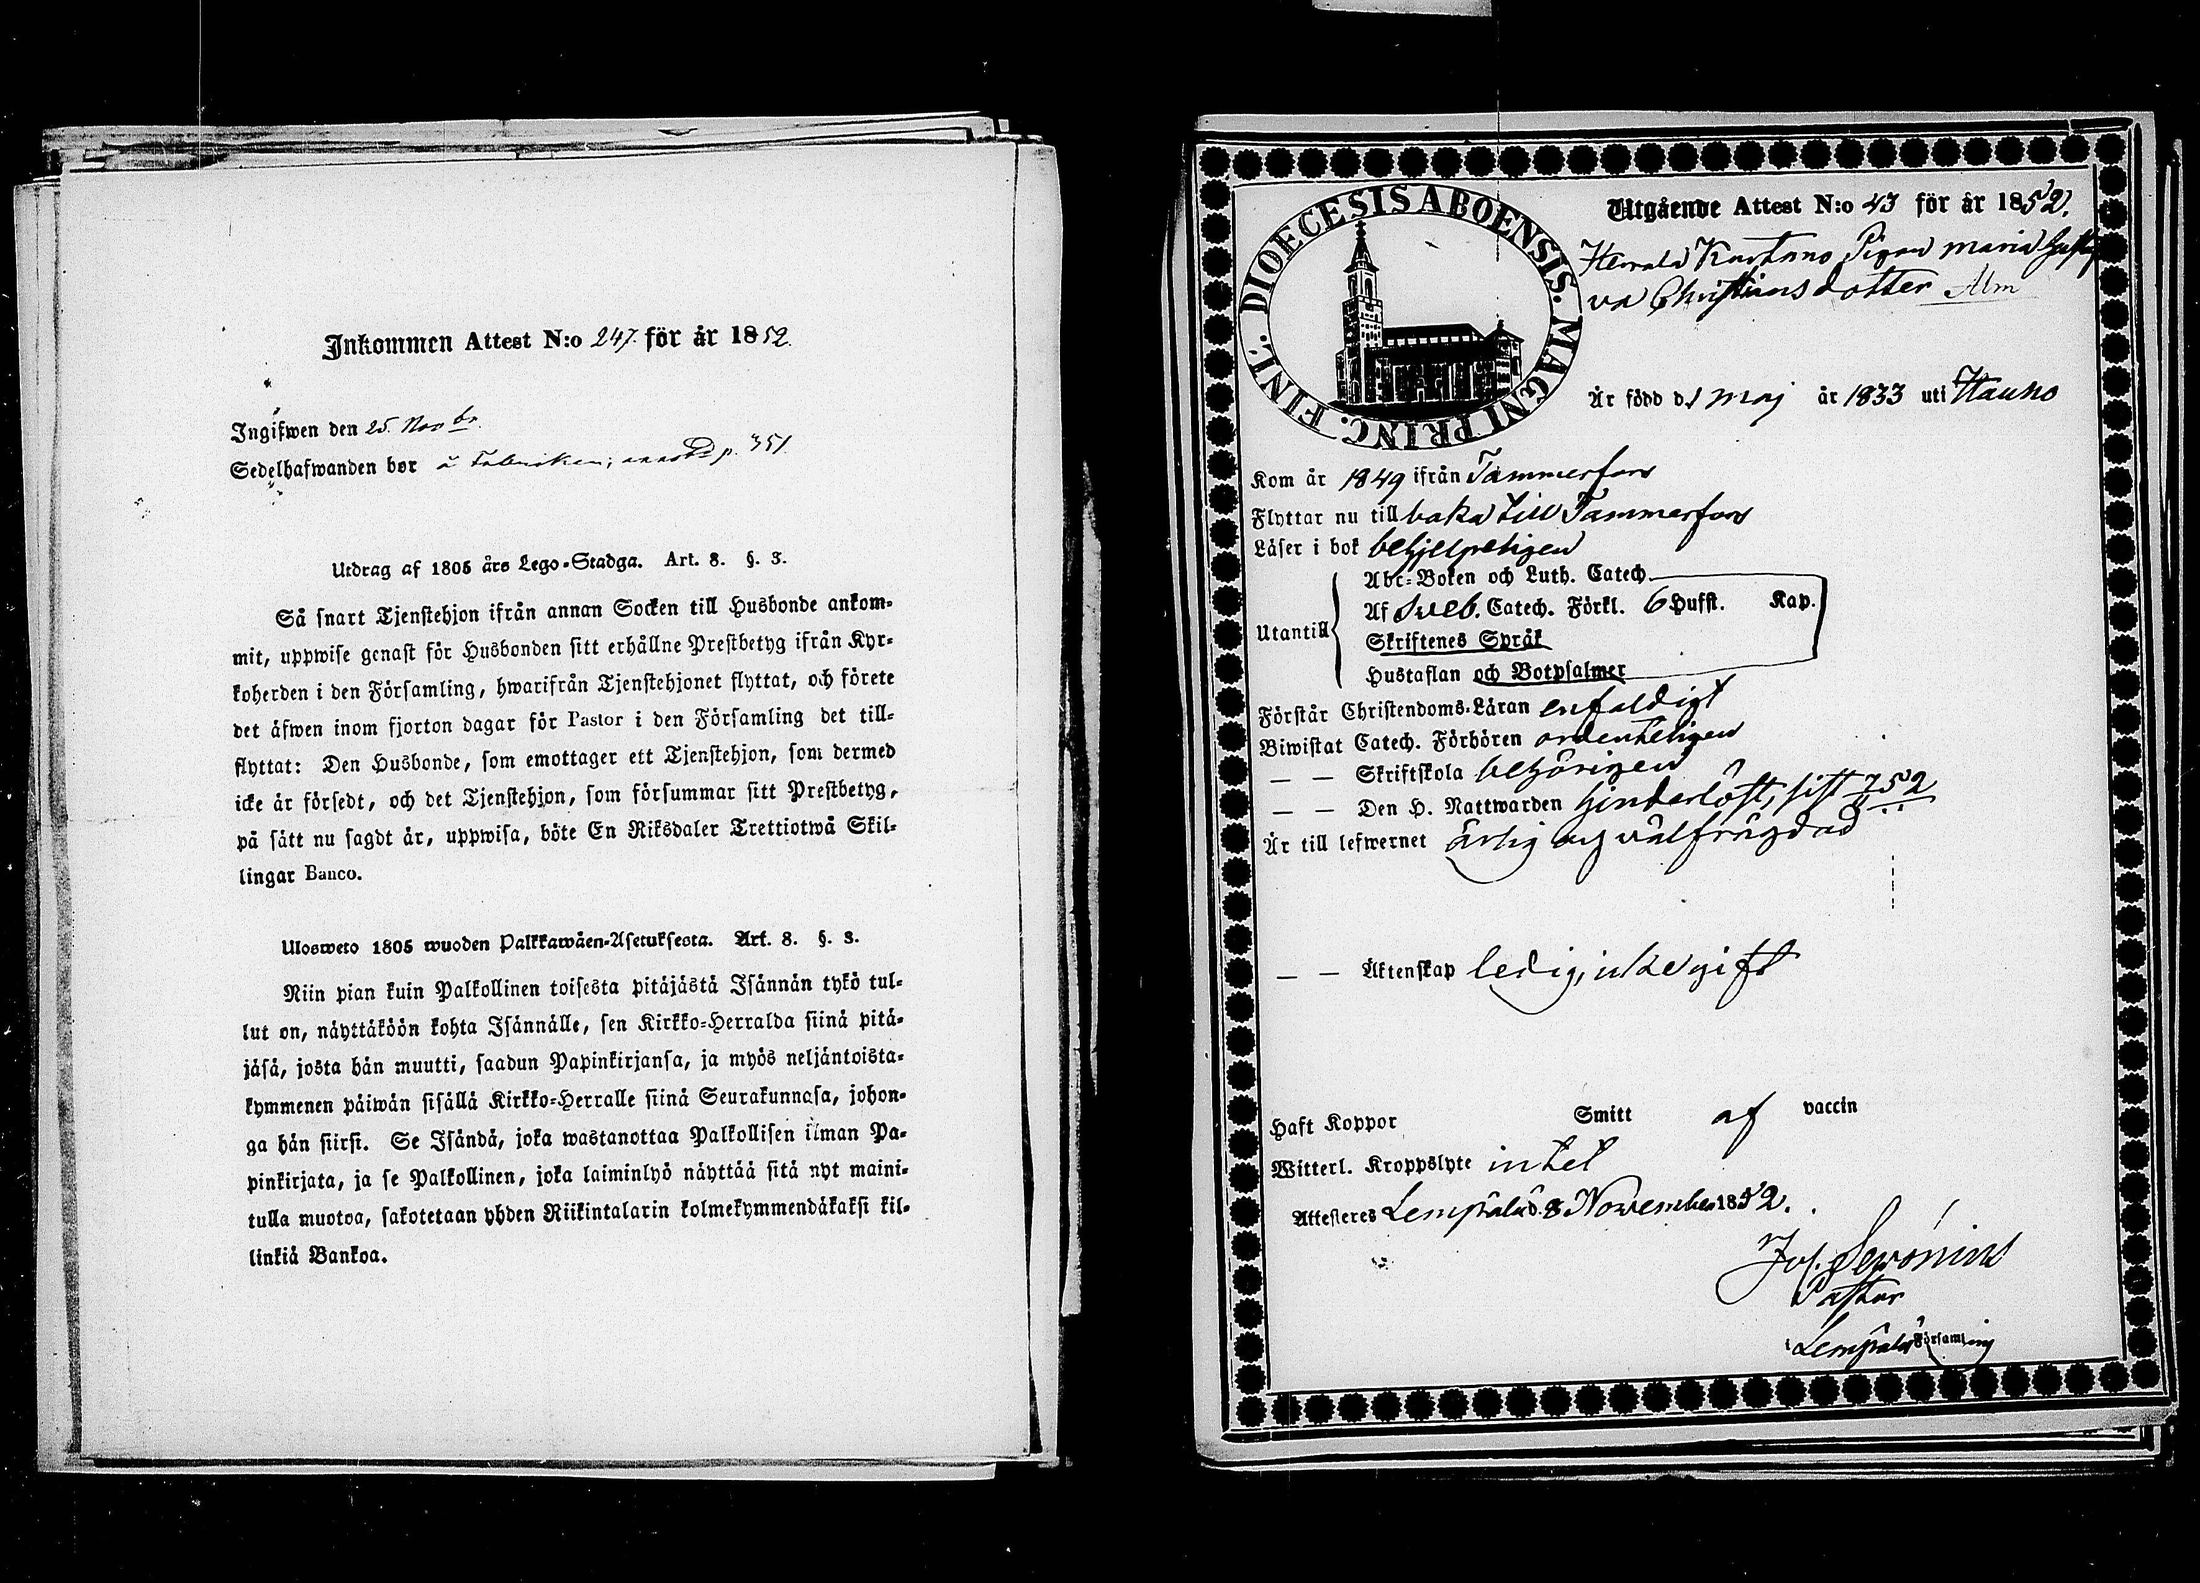 Inkommen Attest N:o 247. för år 1852.
Ingifwen den 25. Novbr.
Sedelhafwanden bor å Fabriken; p. 351.
Utdrag af 1805 års Lego-Stadga. Art. 8. §. 3.
Så snart Tjenstehjon ifrån annan Socken till Husbonde ankom-
mit, uppwise genast för Husbonden sitt erhållne Prestbetyg ifrån Kyr-
koherden i den Församling, hwarifrån Tjenstehjonet flyttat, och förete
det äfwen inom fjorton dagar för Pastor i den Församling det till-
flyttat: Den Husbonde, som emottager ett Tjenstehjon, som dermed
icke är försedt, och det Tjenstehjon, som försummar sitt Prestbetyg,
på sätt nu sagdt är, uppwisa, böte En Riksdaler Trettiotwå Skil-
lingar Banco.
Ulosweto 1805 wuoden Palkkawäen-Asetuksesta. Art. 8. §. 3.
Niin pian kuin Palkollinen toisesta pitäjästä Isännän tykö tul-
lut on, näyttäköön kohta Isännälle, sen Kirkko-Herralda siinä pitä-
jäsä, josta hän muutti, saadun Papinkirjansa, ja myös neljäntoista-
kymmenen päiwän sisällä Kirkko-Herralle siinä Seurakunnasa, johon-
ga hän siirsi. Se Isändä, joka wastanottaa Palkollisen ilman Pa-
pinkirjata, ja se Palkollinen, joka laiminlyö näyttää sitä nyt maini-
tulla muotoa, sakotetaan yhden Riikintalarin kolmekymmendäkaksi kil-
linkiä Bankoa.
DIOECESIS ABOENSIS. MAGNI PRINC. FINL.
Utgående Attest N:o 43 för år 1852.
Herrala Kurtano Pigan Maria Gusta
va Christiansdotter Alm
Är född d. 1 Maj år 1833 uti Hauho
Kom år 1849 ifrån Tammerfors
Flyttar nu tillbaka till Tammerfors
Läser i bok behjelpeligen
Utantill
Abc-Boken och Luth. Catech.
Af Sveb. Catech. Förkl. 6 Hufst. Kap.
Skriftenes Språk
Hustaflan och Botpsalmer
Förstår Christendoms-Läran enfaldigt
Biwistat Catech. Förhören ordenteligen
— — Skriftskola behörigen
— — Den H. Nattwarden hinderlöst, sist 7 5 2
Är till lefwernet ärlig og välfrägdad
— — Äktenskap ledig, icke gift
Haft Koppor Smitt af vaccin
Witterl. Kroppslyte intet
Attesteres Lempälä d. 8 November 1852.
Jos. Servonius
Pastor
i Lempälä Församling